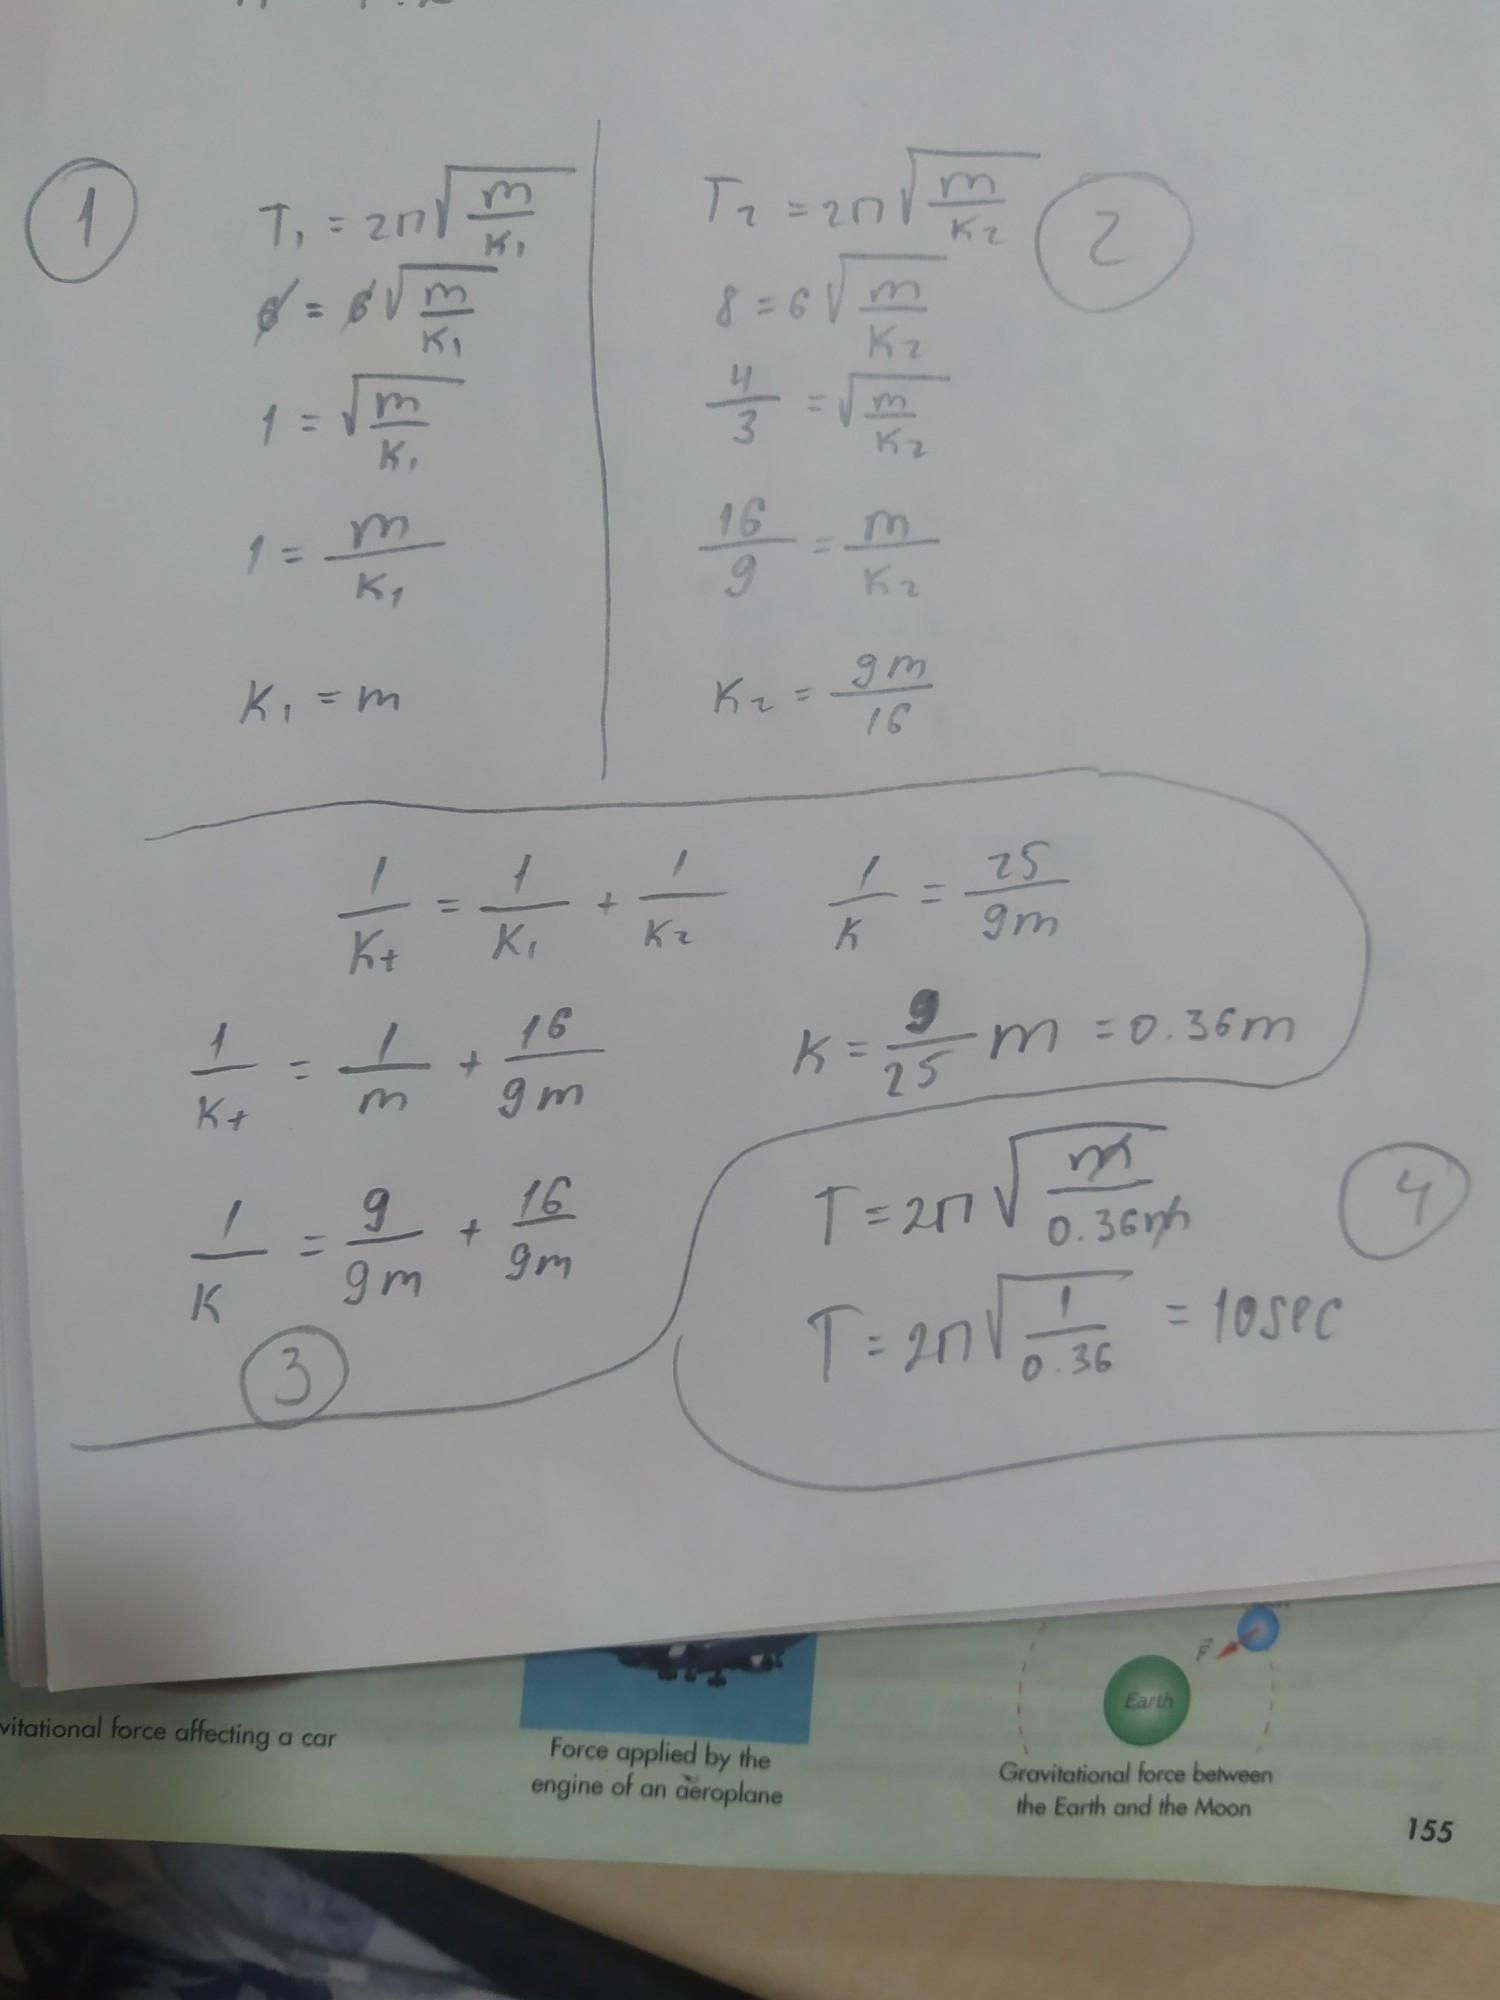 1
T₁ = 2π√(m/K₁)
6 = 6√(m/K₁)
1 = √(m/K₁)
1 = m/K₁
K₁ = m
2
T₂ = 2π√(m/K₂)
8 = 6√(m/K₂)
4/3 = √(m/K₂)
16/9 = m/K₂
K₂ = 9m/16
1/Kt = 1/K₁ + 1/K₂
1/Kt = 1/m + 16/9m
1/K = 9/9m + 16/9m
3
1/K = 25/9m
K = 9/25 m = 0.36m
4
T = 2π√(m/0.36m)
T = 2π√(1/0.36) = 10sec
vitational force affecting a car
Force applied by the
engine of an aeroplane
F
Earth
Gravitational force between
the Earth and the Moon
155